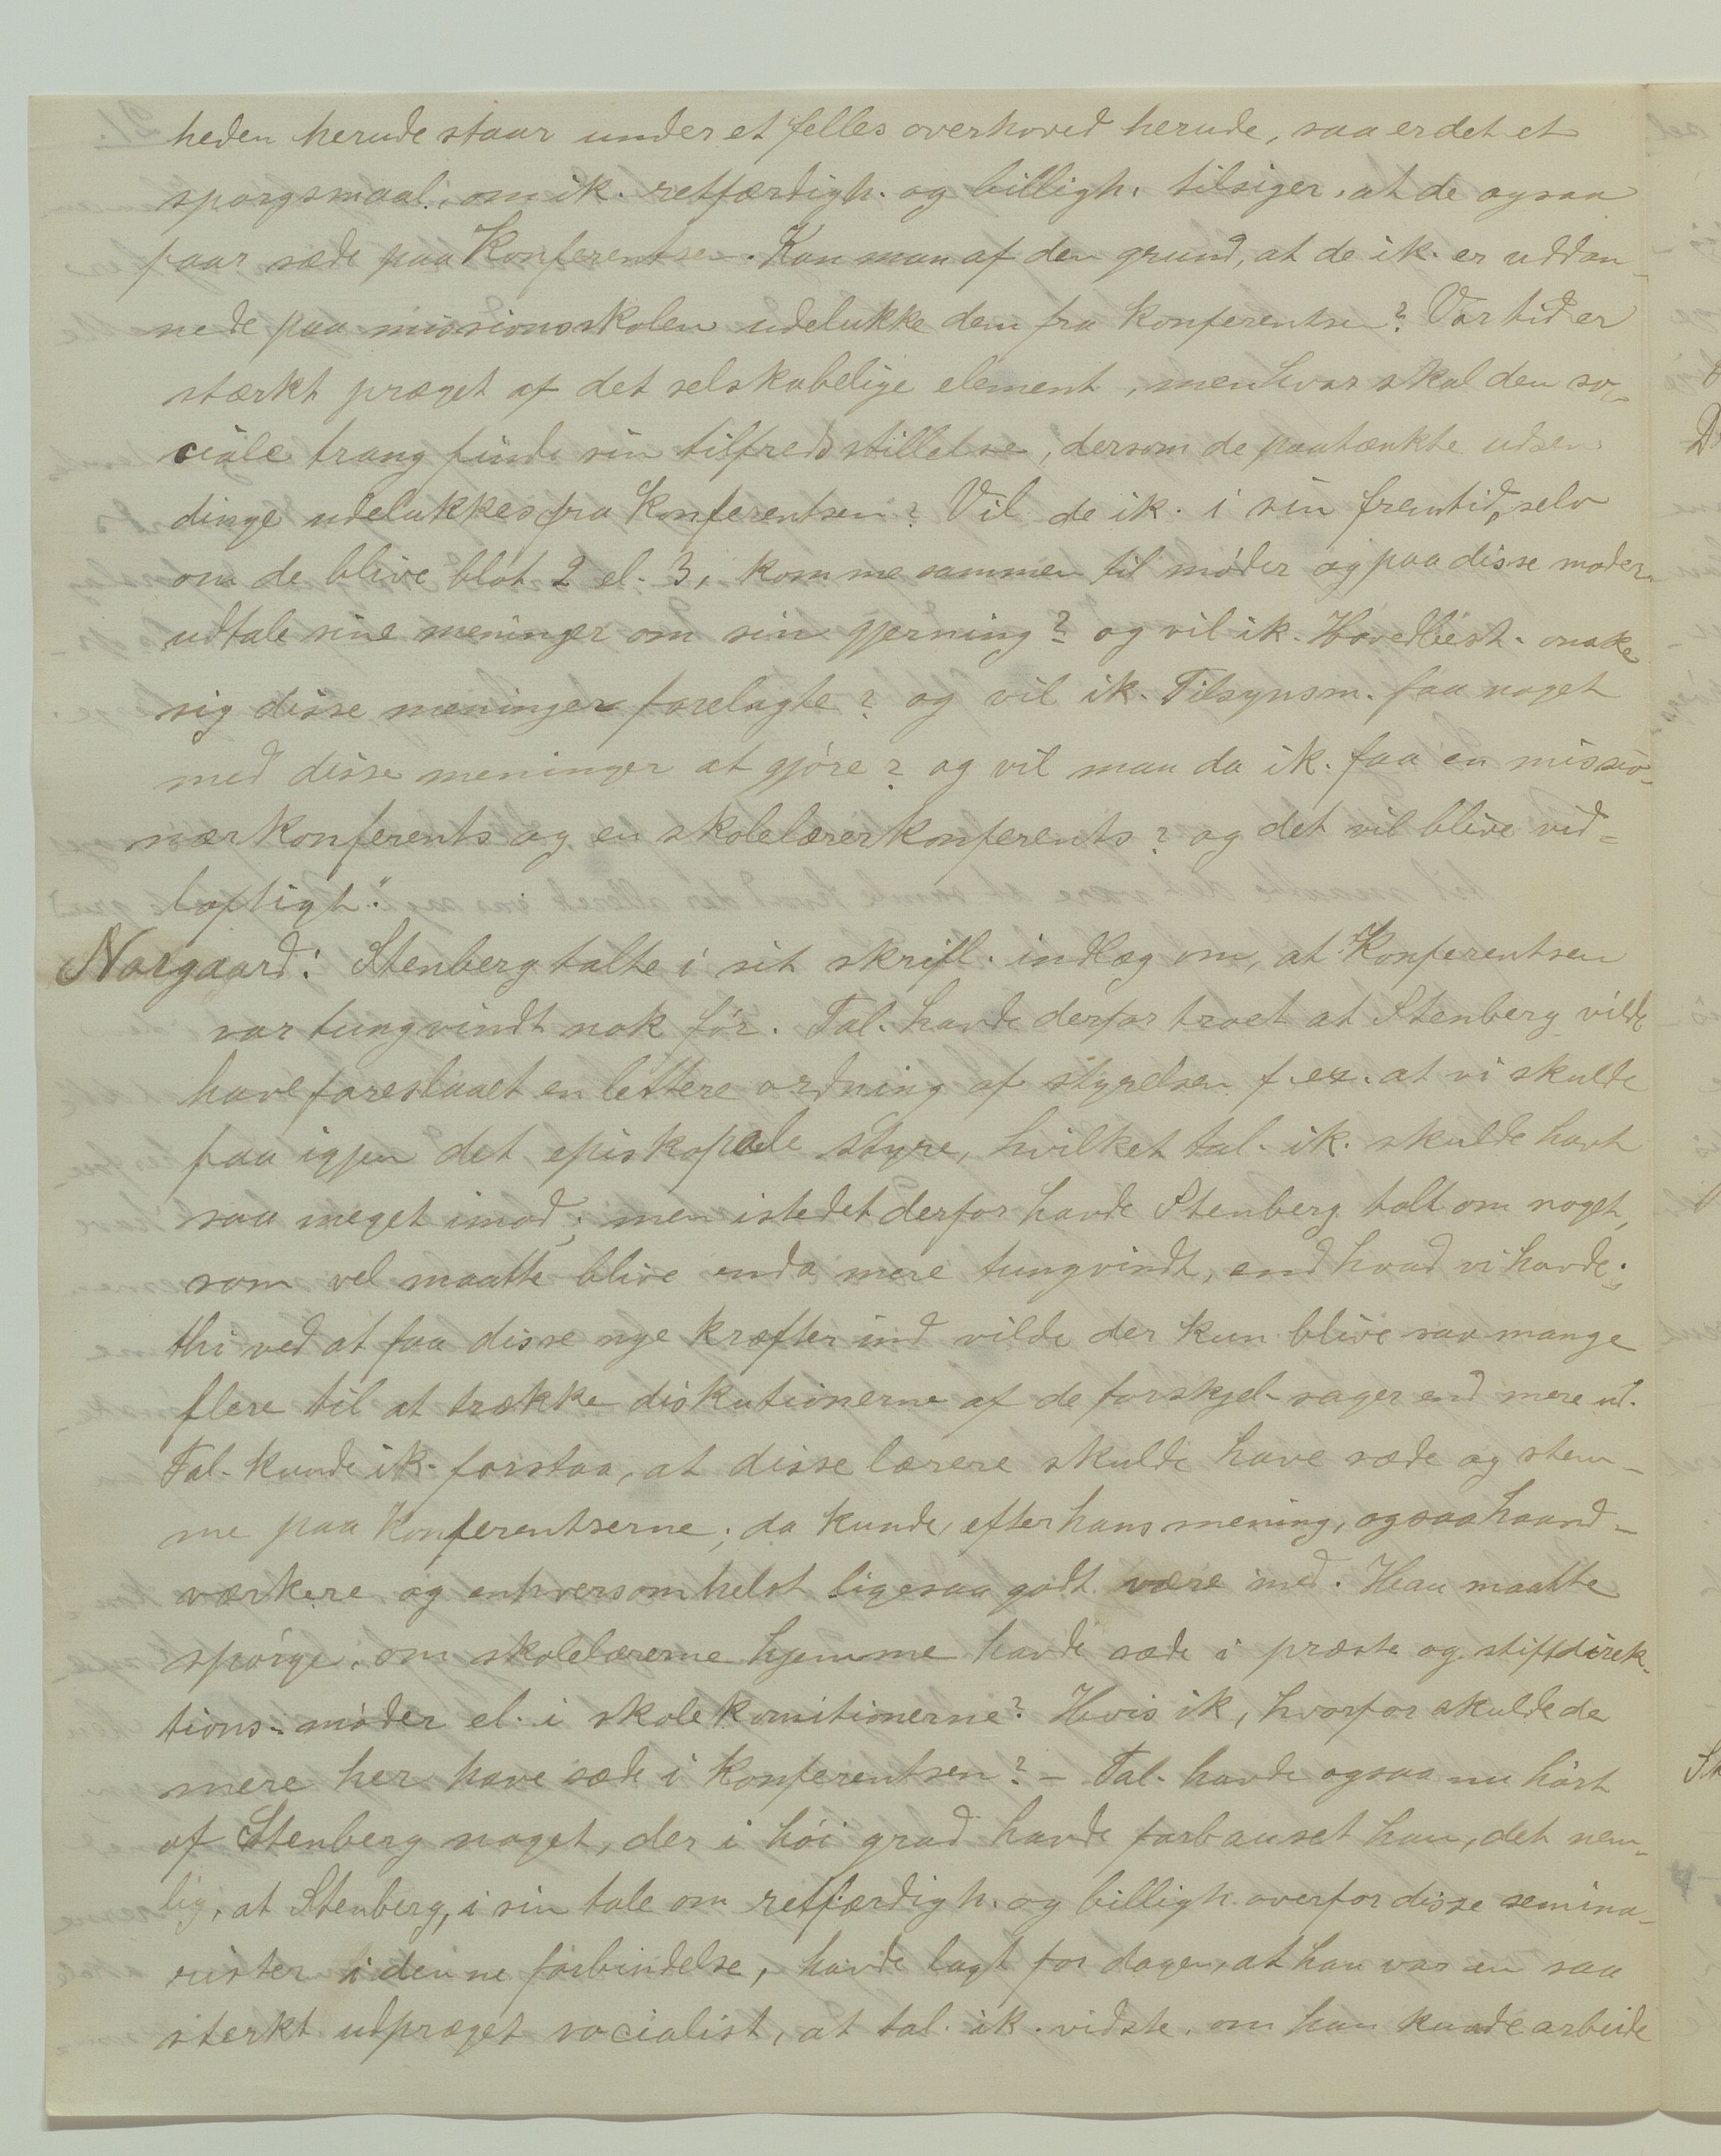 heden herude staar under et felles overhoved herude, saa er det et
sporgsmaal, om ik. retfærdigh. og billigh. tilsiger, at de ogsaa
faar sæde paa Konferentsen. Kan man af den grund, at de ik. er uddan-
nede paa missionsskolen udelukke dem fra Konferentsen? Vor tid er
stærkt præget af det selskabelige element, men hvor skal den so-
ciale trang finde sin tilfredsstillelse, dersom de paatænkte udsen-
dinge udelukkes fra Konferentsen? Vil de ik. i sin fremtid, selv
om de blive blot 2 el. 3, komme sammen til möder og paa disse moder
udtale sine meninger om sin gjerning? og vil ik. Hovedbest. onske
sig disse meninger forelagte? og vil ik. Tilsynsm. faa noget
med disse meninger at gjöre? og vil man da ik. faa en missio-
nærkonferents og en skolelærerkonferents? og det vil blive vid-
loftigt."
Norgaard: Stenberg talte i sit skriftl. indlæg om, at Konferentsen
var tungvindt nok för. Tal. havde derfor troet at Stenberg vilde
have foreslaaet en lettere ordning af styrelsen f. ex. at vi skulde
faa igjen det episkopale styre, hvilket tal. ik. skulde havt
saa meget imod; men istedet derfor havde Stenberg talt om noget,
som vel maatte blive enda mere tungvindt, end hvad vi havde;
thi ved at faa disse nye kræfter ind vilde der kun blive saa mange
flere til at trække diskutionerne af de forskjel. sager end mere ud.
Tal. kunde ik. forstaa, at disse lærere skulde have sæde og stem-
me paa Konferentserne; da kunde, efter hans mening, ogsaa haand-
værkere og enhversomhelst ligesaa godt være med. Han maatte
spörge, om skolelærerne hjemme havde sæde i præste og stiftdirek-
tions-möder el. i skolekomitionerne? Hvis ik, hvorfor skulde de
mere her have sæde i Konferentsen? – Tal. havde ogsaa nu hört
af Stenberg noget, der i höi grad havde forbauset ham, det nem-
lig, at Stenberg, i sin tale om retfærdigh. og billigh. overfor disse semina-
rister i denne forbindelse, havde lagt for dagen, at han var en saa
sterkt udpræget socialist, at tal. ik. vidste, om han kunde arbeide